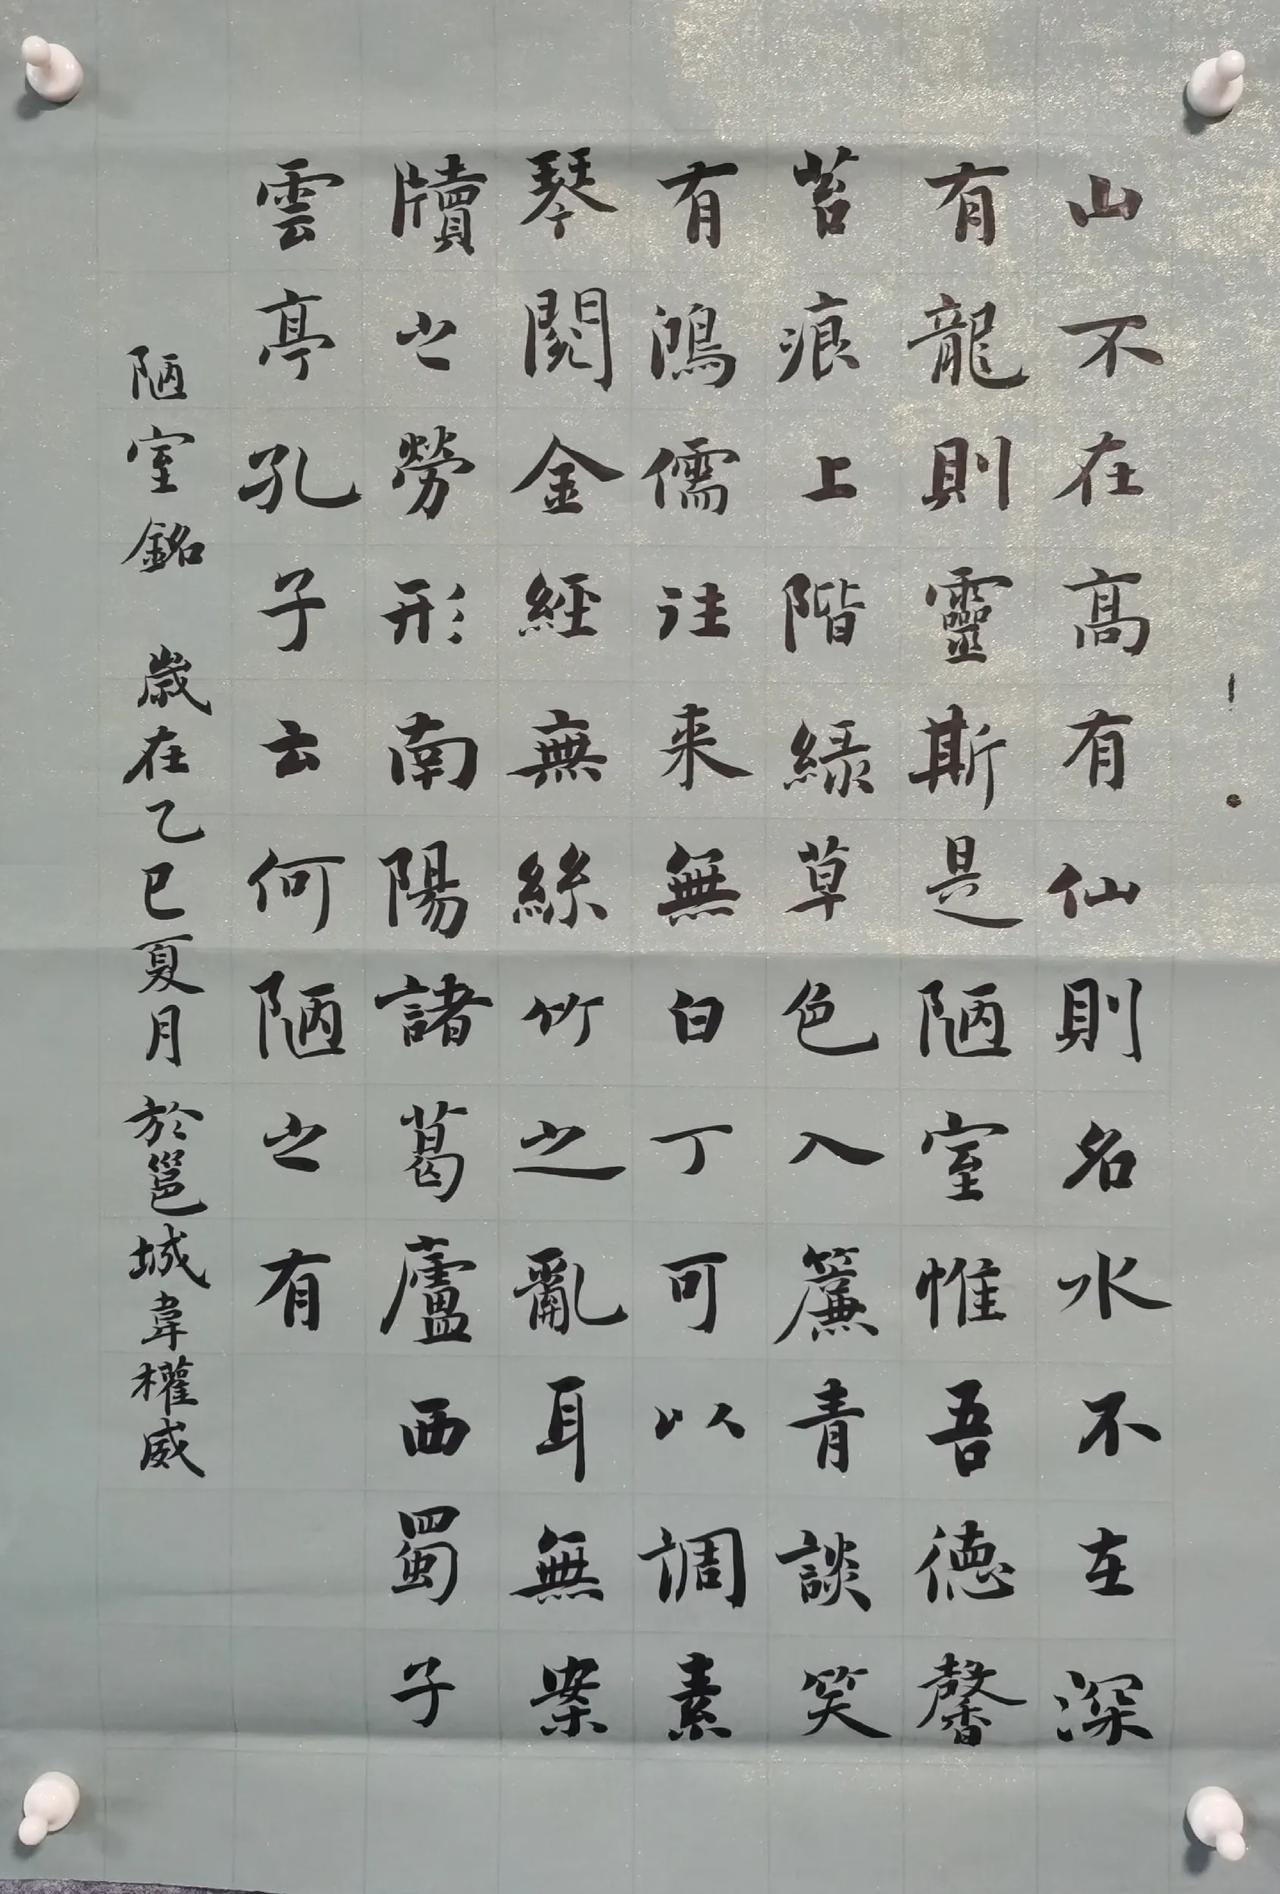 山不在高有仙則名水不在深
有龍則靈斯是陋室惟吾德馨
苔痕上階緑草色入簾青談笑
有鴻儒往来無白丁可以調素
琴閱金經無絲竹之亂耳無案
牘之勞形南陽諸葛廬西蜀子
雲亭孔子云何陋之有
陋室銘 歲在乙巳夏月於邕城韋權威